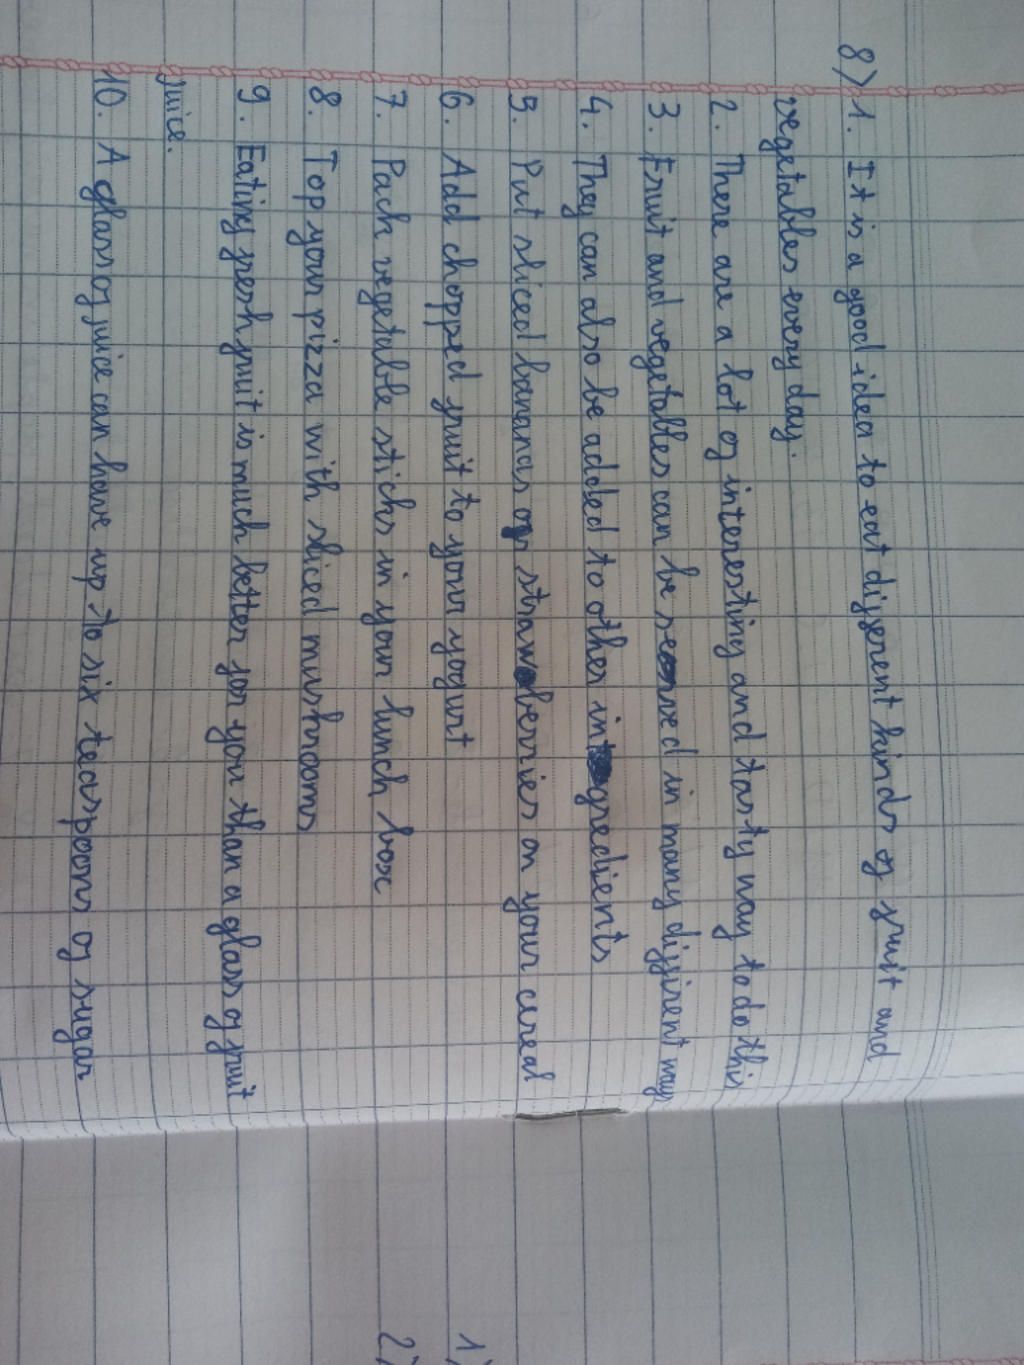 8) 1. It is a good idea to eat different kinds of fruit and
vegetables every day.
2. There are a lot of interesting and tasty way to do this
3. Fruit and vegetables can be served in many diffirent ways
4. They can also be added to other ingredients
5. Put sliced bananas or strawberries on your cereal
6. Add chopped fruit to your yogurt
7. Pack vegetable sticks in your lunch box
8. Top your pizza with sliced mushrooms
9. Eating fresh fruit is much better for you than a glass of fruit
Juice.
10. A glass of juice can have up to six teaspoons of sugar
1)
2)